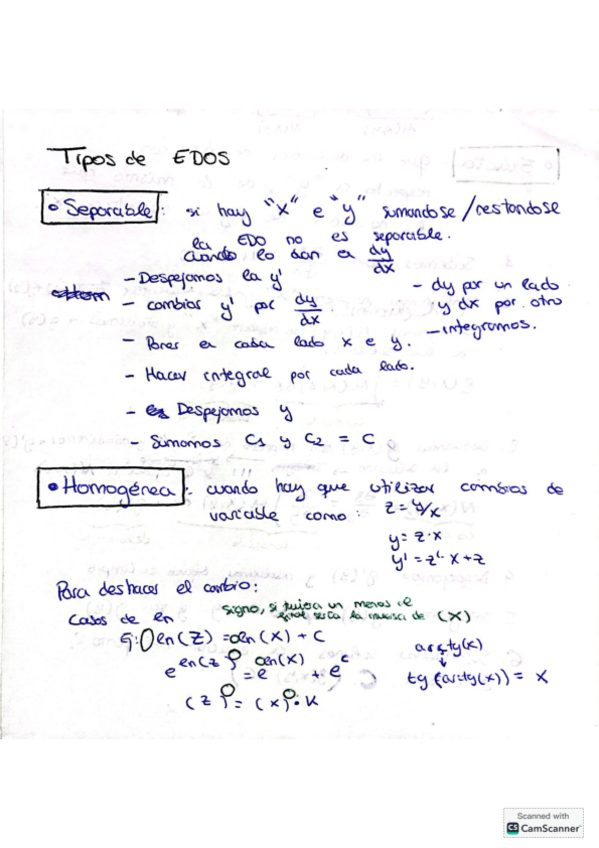 Tipos de EDOS
• Separable: si hay "x" e "y" sumandose/restandose
la EDO no es separable.
cuando lo dan en dy/dx
- Despejamos la y'
- cambiar y' por dy/dx
- Poner en cada lado x e y.
- Hacer integral por cada lado.
- Despejamos y
- Sumamos C1 y C2 = C
- dy por un lado
y dx por otro
- integramos.
• Homogénea: cuando hay que utilizar cambios de
variable como: z = y/x
y = z·x
y' = z'·x+z
Para deshacer el cambio:
Casos de ln
signo, si tuviera un menos el
final sería la inversa de (x)
ln(z) = ln(x) + C
e ln(z) = e ln(x) + e^c
(z) = (x)·K
arctg(x)
↓
tg(arctg(x)) = x
Scanned with
CS CamScanner